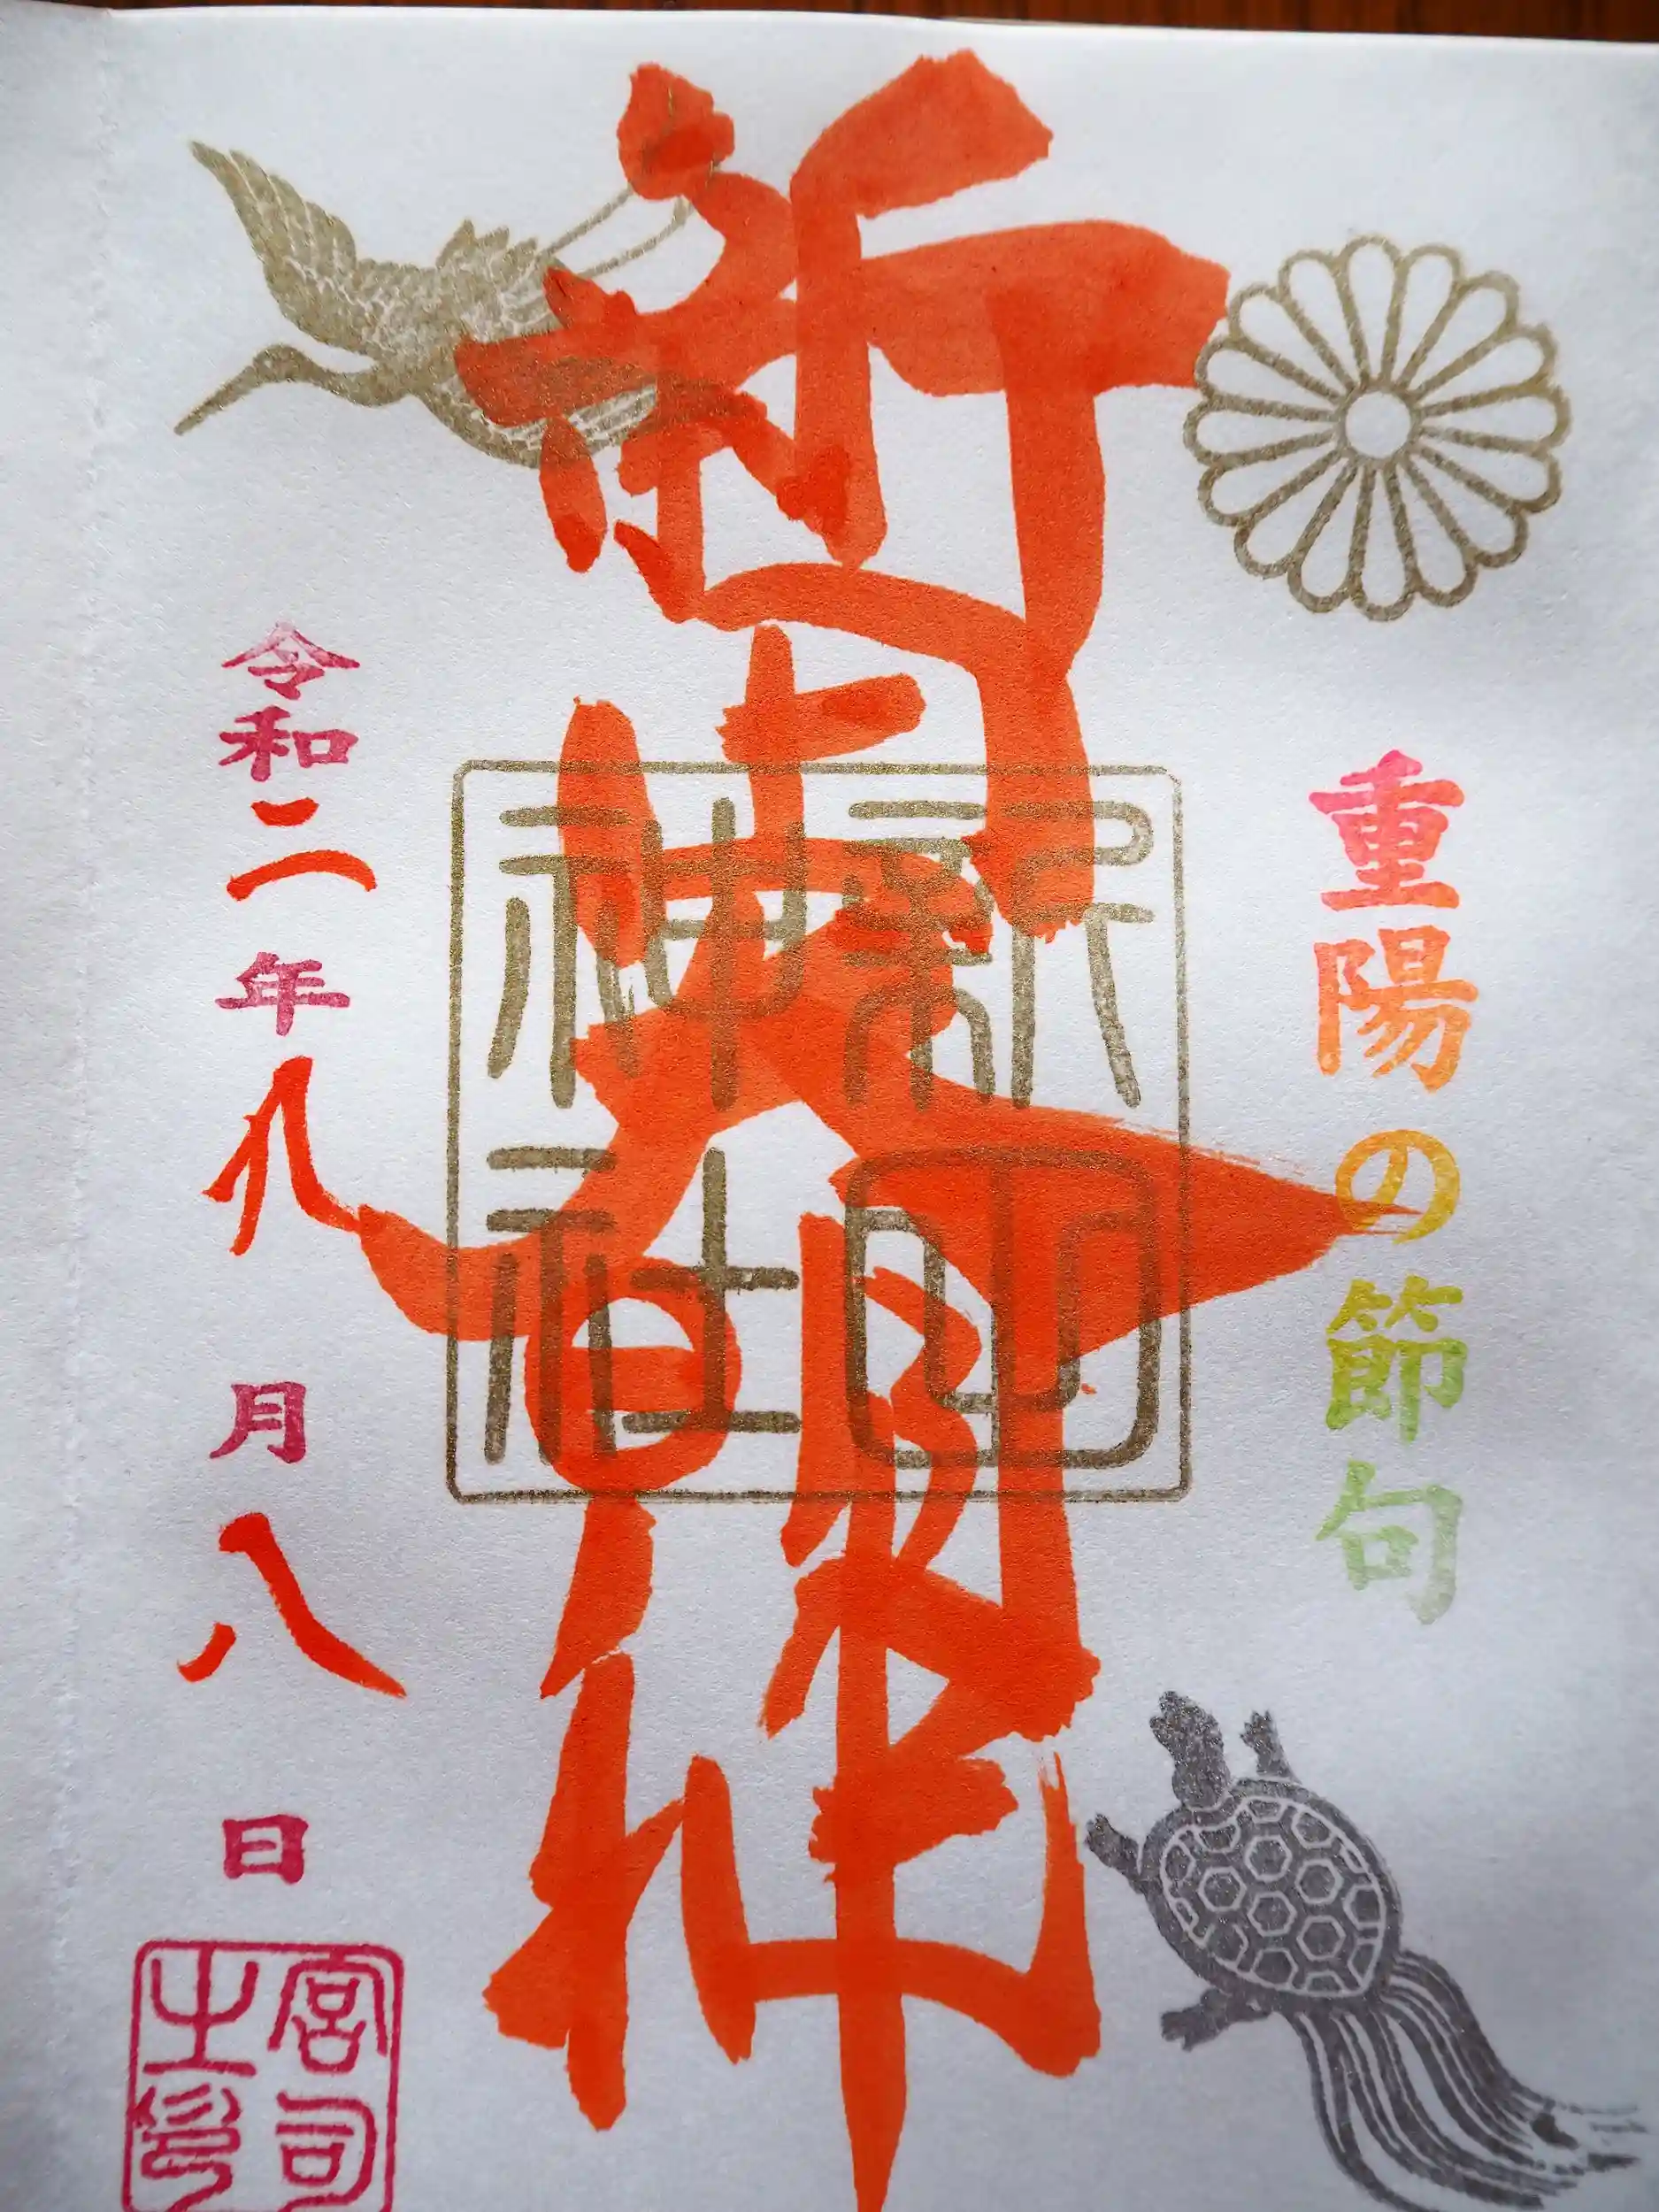 重陽の節句
新田大明神
新田神社
令和二年九月八日
宮司之印